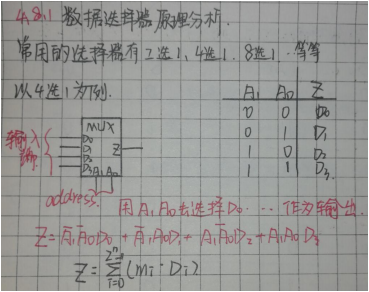 4.8.1 数据选择器原理分析.
常用的选择器有2选1, 4选1, 8选1...等等
以4选1为例.
A₁ A₀ Z
0 0 D₀
0 1 D₁
1 0 D₂
1 1 D₃
输入
MUX
D₀
D₁
D₂
D₃
Z
A₁A₀
address
用A₁A₀去选择D₀...作为输出.
Z=A̅₁A̅₀D₀ + A̅₁A₀D₁ + A₁A̅₀D₂ + A₁A₀D₃
Z=∑_{i=0}^{2ⁿ-1}(mᵢ·Dᵢ)